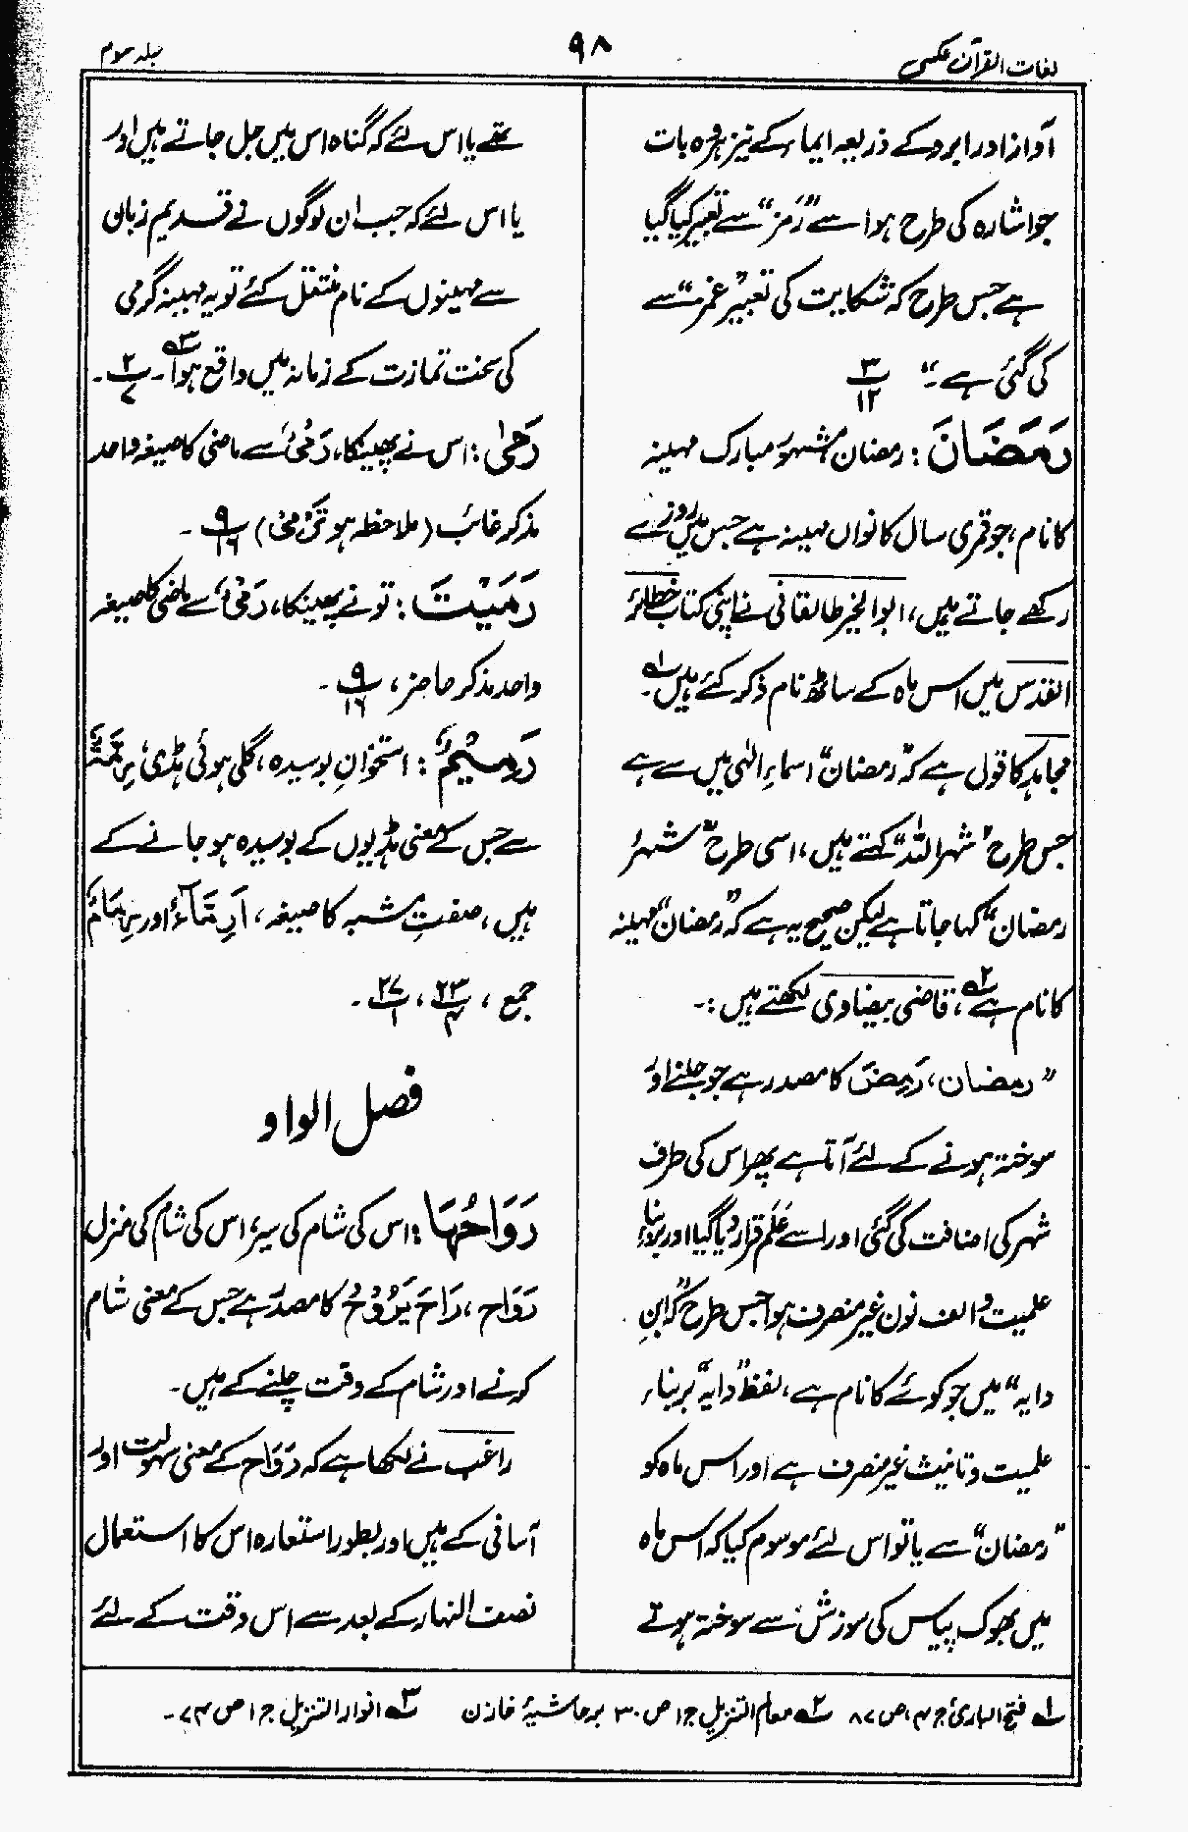 لغات القرآن عکسی
۹۸
جلد سوم
آواز اور ابرو کے ذریعہ ایماء کے نیز ہر وہ بات
جو اشارہ کی طرح ہو اسے "رَمز" سے تعبیر کیا گیا
ہے جس طرح کہ شکایت کی تعبیر "غمز" سے
کی گئی ہے۔" ۳/۱۲
رَمَضَانَ: رمضان مشہور مبارک مہینہ
کا نام، جو قمری سال کا نواں مہینہ ہے جس میں روزے
رکھے جاتے ہیں، ابو الخیر طالقانی نے اپنی کتاب حظائر
القدس میں اس ماہ کے ساٹھ نام ذکر کئے ہیں۔ ۱ـه
مجاہد کا قول ہے کہ "رمضان" اسماءِ الٰہی میں سے ہے
جس طرح "شہر اللہ" کہتے ہیں، اسی طرح "شہرُ
رمضان" کہا جاتا ہے لیکن صحیح یہ ہے کہ "رمضان" مہینہ
کا نام ہے ۲ـه، قاضی بیضاوی لکھتے ہیں :-
"رمضان، رَمِضَ کا مصدر ہے جو جلنے اور
سوختہ ہونے کے لئے آتا ہے پھر اس کی طرف
شہر کی اضافت کی گئی اور اسے عَلَم قرار دیا گیا اور بربناء
علمیت و الف نون غیر منصرف ہوا جس طرح کہ "ابنِ
دایہ" میں جو کوئے کا نام ہے، لفظ "دایہ" بربناء
علمیت و تانیث غیر منصرف ہے اور اس ماہ کو
"رمضان" سے یا تو اس لئے موسوم کیا کہ اس ماہ
میں بھوک پیاس کی سوزش سے سوختہ ہوتے
تھے یا اس لئے کہ گناہ اس میں جل جاتے ہیں اور
یا اس لئے کہ جب ان لوگوں نے قدیم زبان
سے مہینوں کے نام منتقل کئے تو یہ مہینہ گرمی
کی سخت تمازت کے زمانہ میں واقع ہوا۔ ۳ـه ۲/۷ ۔
رَمٰی: اس نے پھینکا، رَمْیٌ سے ماضی کا صیغہ واحد
مذکر غائب (ملاحظہ ہو تَرْمِیْ) ۹/۱۶ ۔
رَمَیْتَ: تو نے پھینکا، رَمْیٌ سے ماضی کا صیغہ
واحد مذکر حاضر، ۹/۱۶ ۔
رَمِیْمٌ: استخوانِ بوسیدہ، گلی ہوئی ہڈی، رِمَّةٌ
سے جس کے معنی ہڈیوں کے بوسیدہ ہو جانے کے
ہیں، صفتِ مشبہ کا صیغہ، اَرِمَّاءُ اور رِمَامٌ
جمع، ۲۳/۴، ۲۷/۱ ۔
فصل الواو
رَوَاحُهَا: اس کی شام کی سیر، اس کی شام کی منزل
رَوَاح، رَاحَ یَرُوْحُ کا مصدر ہے جس کے معنی شام
کرنے اور شام کے وقت چلنے کے ہیں۔
راغب نے لکھا ہے کہ رَوَاح کے معنی سہولت اور
آسانی کے ہیں اور بطور استعارہ اس کا استعمال
نصف النہار کے بعد سے اس وقت کے لئے
۱ـه فتح الباری ج ۴، ص ۸۷ ۲ـه معالم التنزیل ج ۱ ص ۳۰ برحاشیۂ خازن ۳ـه انوار التنزیل ج ۱ ص ۷۴۔